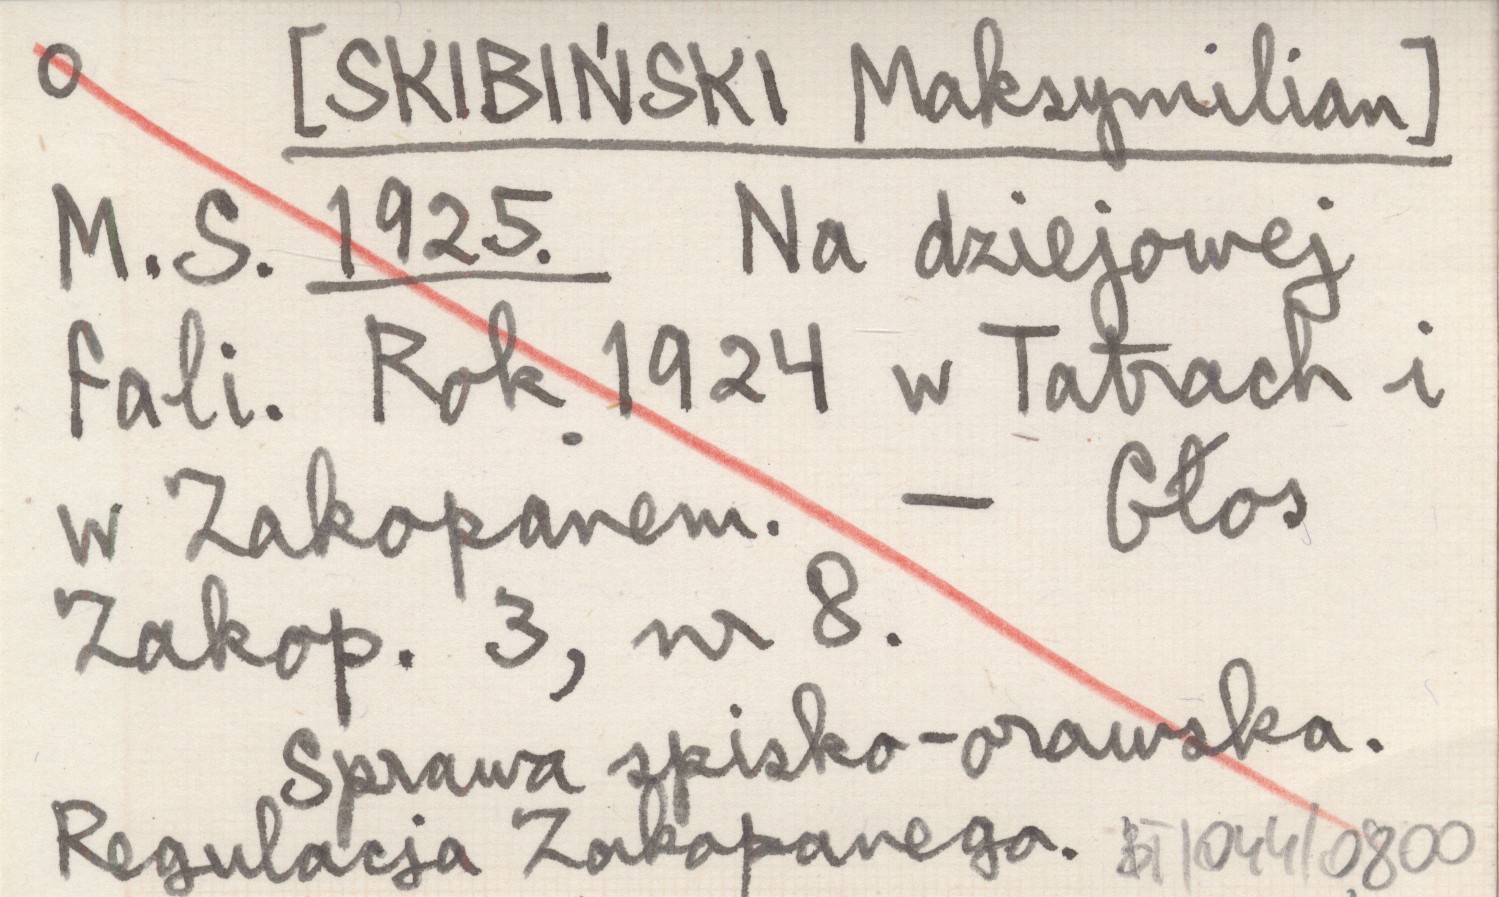 o [SKIBIŃSKI Maksymilian]
M.S. 1925. Na dziejowej
fali. Rok 1924 w Tatrach i
w Zakopanem. — Głos
Zakop. 3, nr 8.
Sprawa spisko-orawska.
Regulacja Zakopanego. /044/0800